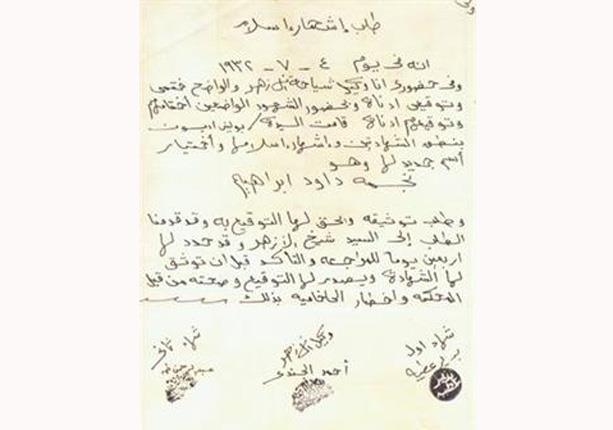 طلب إشهار إسلام
انه فى يوم ٤ - ٧ - ١٩٣٢
وفى حضورى انا وكيل شياخة الازهر والواضع ختمى
وتوقيعى ادناه وبحضور الشهود الواضعين أختامهم
وتوقيعهم ادناه قامت السيدة / بولين اديون
بنطق الشهادتين وإشهار اسلامها وأختيار
أسم جديد لها وهو
نجمه داود ابراهيم
وطلب توثيقه والحق لها التوقيع به وقد قدمنا
الطلب إلى السيد شيخ الازهر وقد حدد لها
اربعين يوما للمراجعه والتأكد قبل ان توثق
لها الشهادة ويصدر لها التوقيع وصحته من قبل
المحكمه واخطار الحاخاميه بذلك
شاهد اول
وكيل الازهر
شاهد ثانى
بديع عطيه
أحمد الجندى